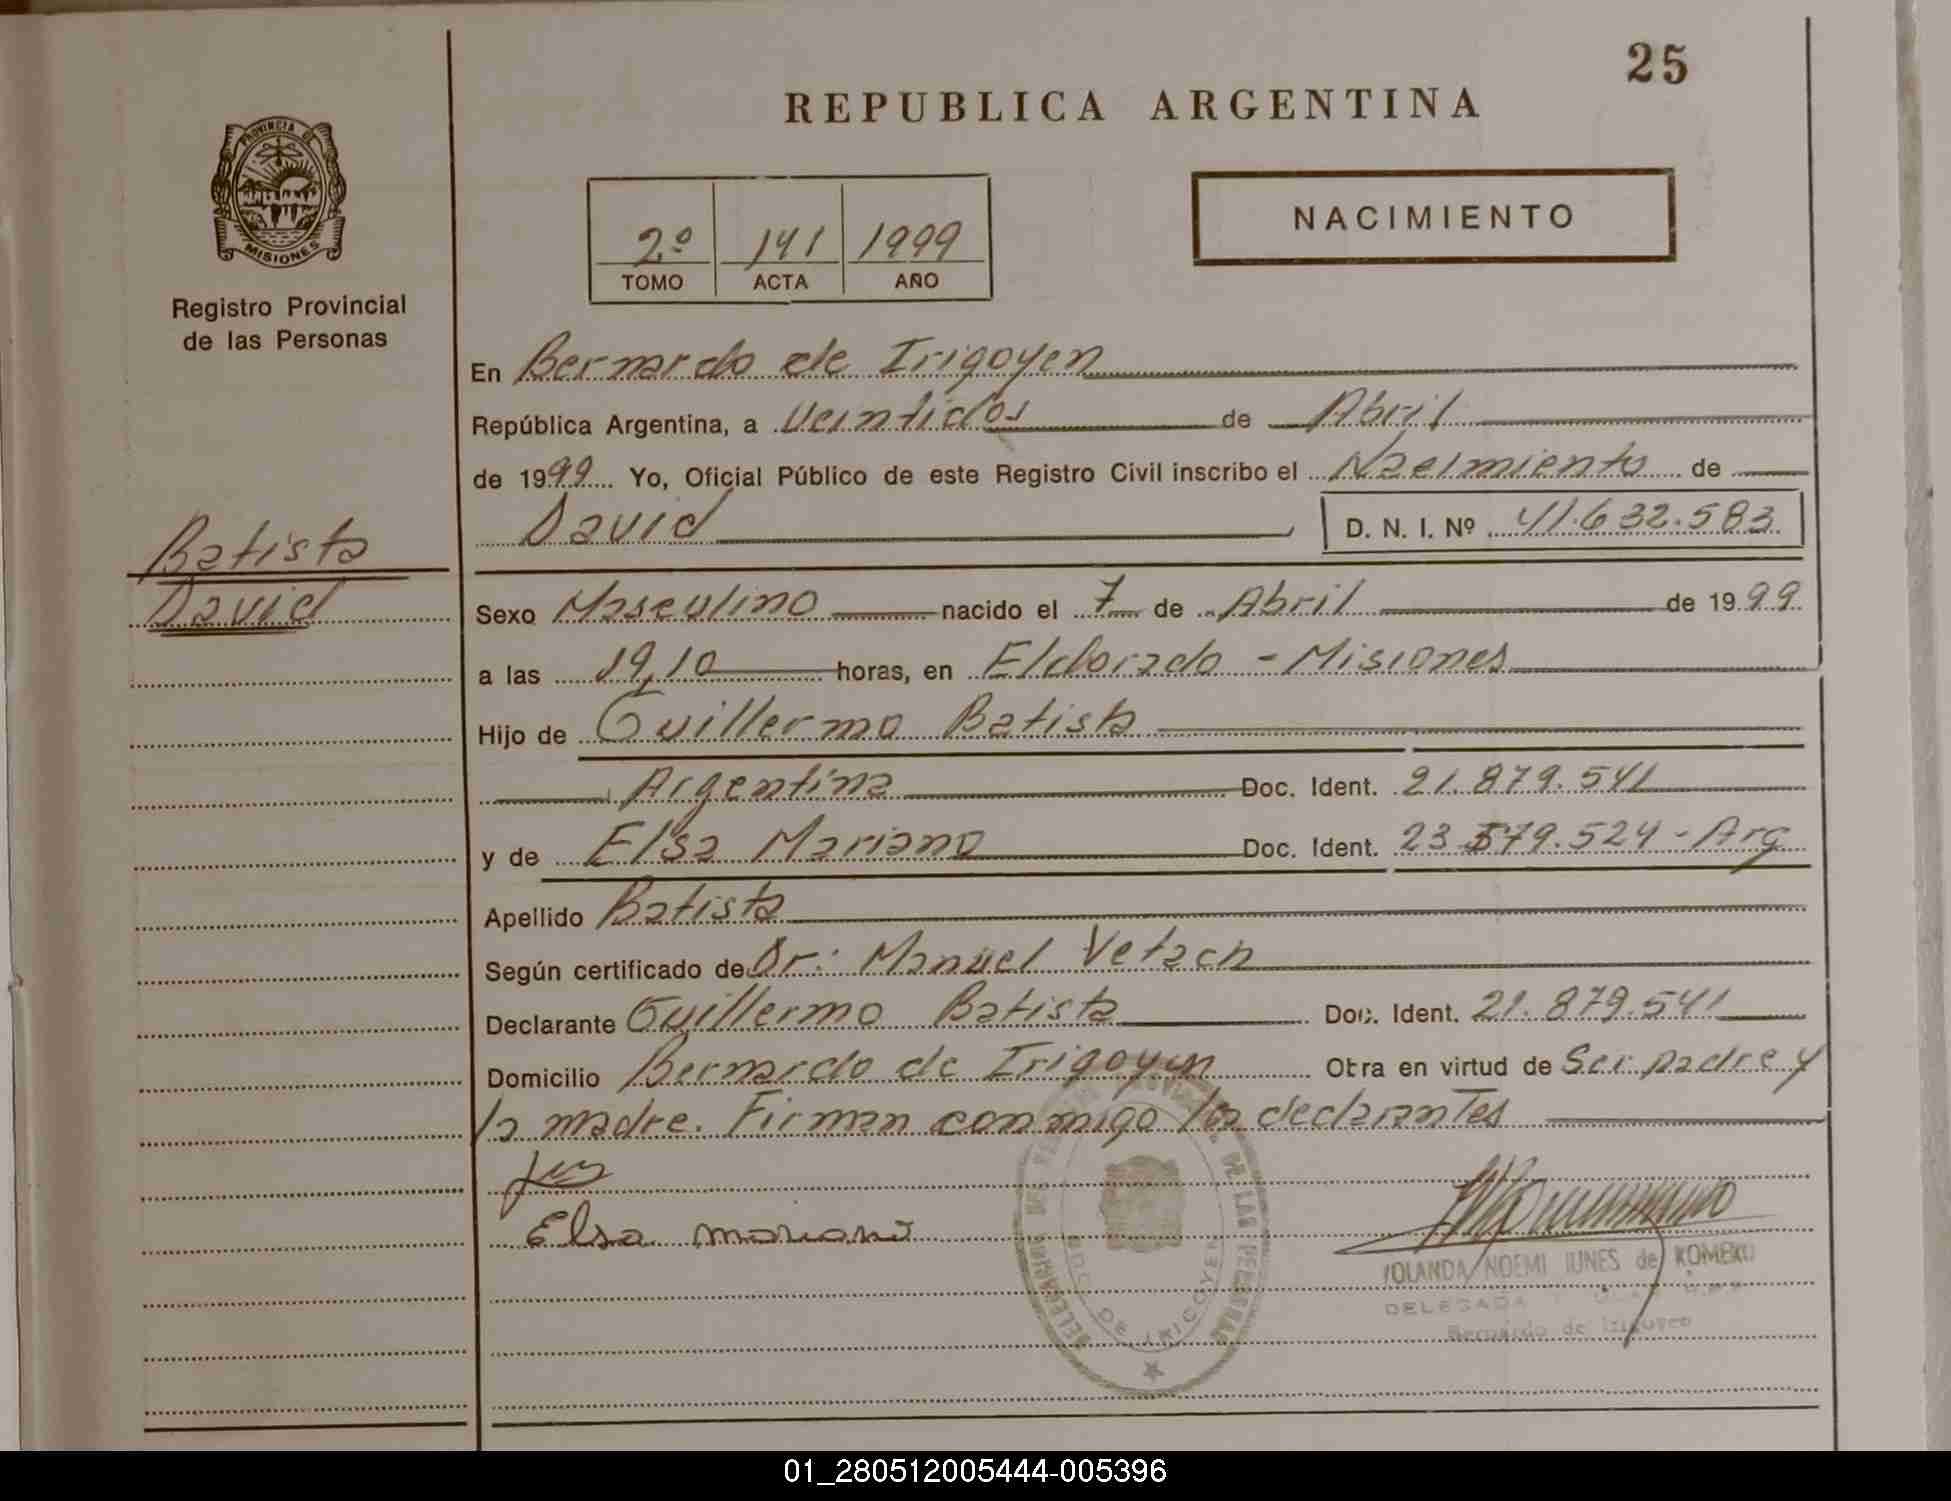 25
REPUBLICA ARGENTINA
PROVINCIA DE
MISIONES
Registro Provincial
de las Personas
2º 141 1999
TOMO ACTA AÑO
NACIMIENTO
En Bernardo de Irigoyen
República Argentina, a Veintidos de Abril
de 1999 Yo, Oficial Público de este Registro Civil inscribo el Nacimiento de
David D. N. I. Nº 41.632.583
Batista
David
Sexo Masculino nacido el 7 de Abril de 1999
a las 19,10 horas, en Eldorado - Misiones
Hijo de Guillermo Batista
Argentina Doc. Ident. 21.879.541
y de Elsa Mariano Doc. Ident. 23.579.524 - Arg
Apellido Batista
Según certificado de Dr: Manuel Vetach
Declarante Guillermo Batista Doc. Ident. 21.879.541
Domicilio Bernardo de Irigoyen Obra en virtud de Ser padre y
la madre. Firman conmigo los declarantes
Elsa mariano
DE LAS PERSONAS
BDO DE IRIGOYEN
YOLANDA NOEMI IUNES de ROMERO
DELEGADA
Bernardo de Irigoyen
01_280512005444-005396